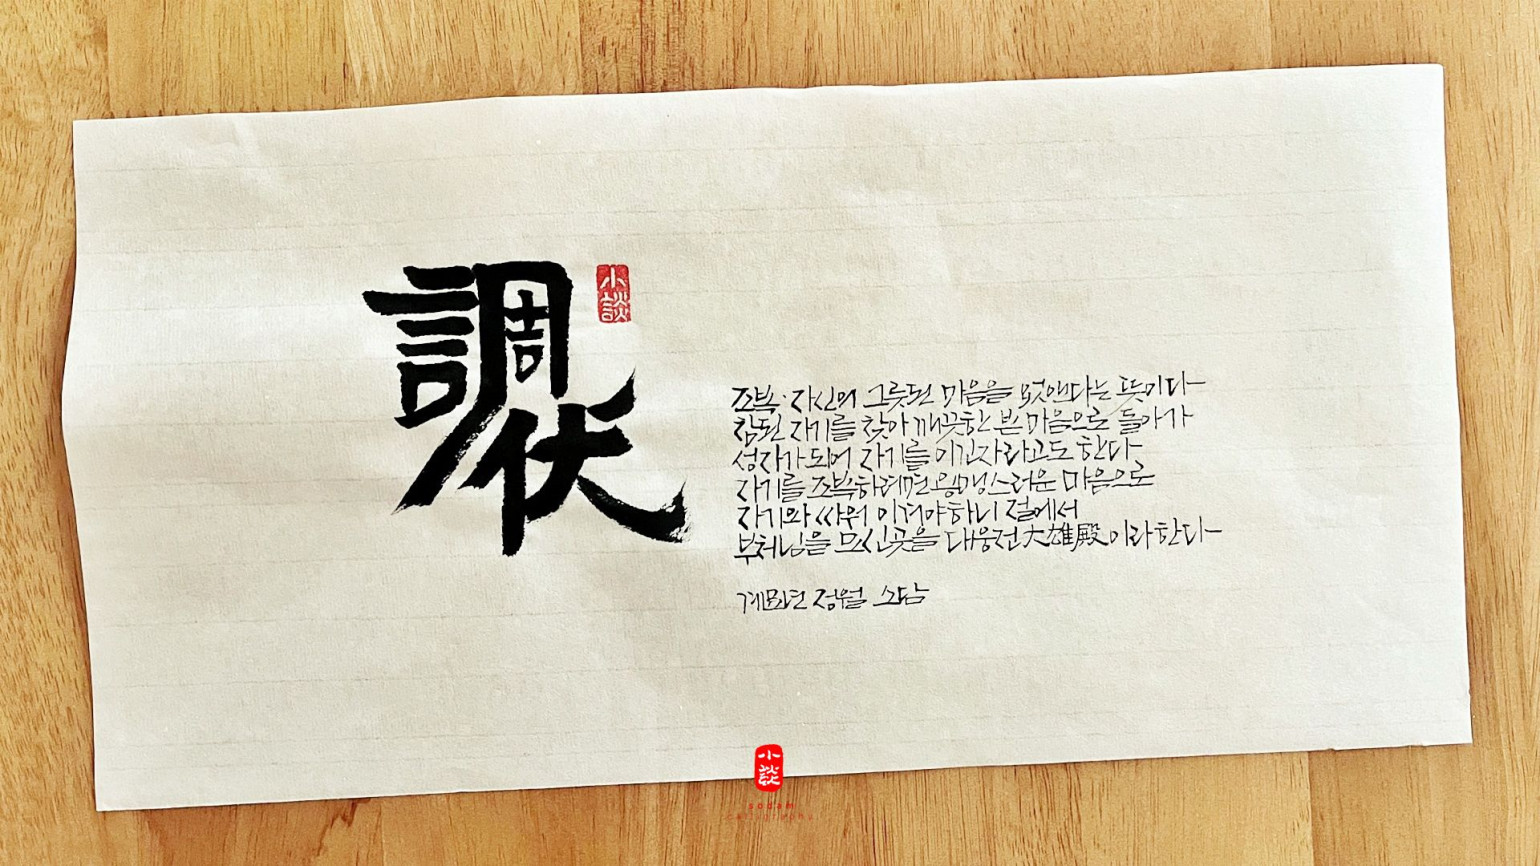 調伏
小談
조복·자신의 그릇된 마음을 멋앤다는 뜻이다
참된 자기를 찾아 깨끗한 본 마음으로 돌아가
성자가 되어 자기를 이긴자라고도 한다
자기를 조복하려면 용맹스러운 마음으로
자기와 싸워 이겨야하니 절에서
부처님을 모신곳을 대웅전大雄殿이라 한다
계묘년 정월 소담
小談
sodam
calligraphy